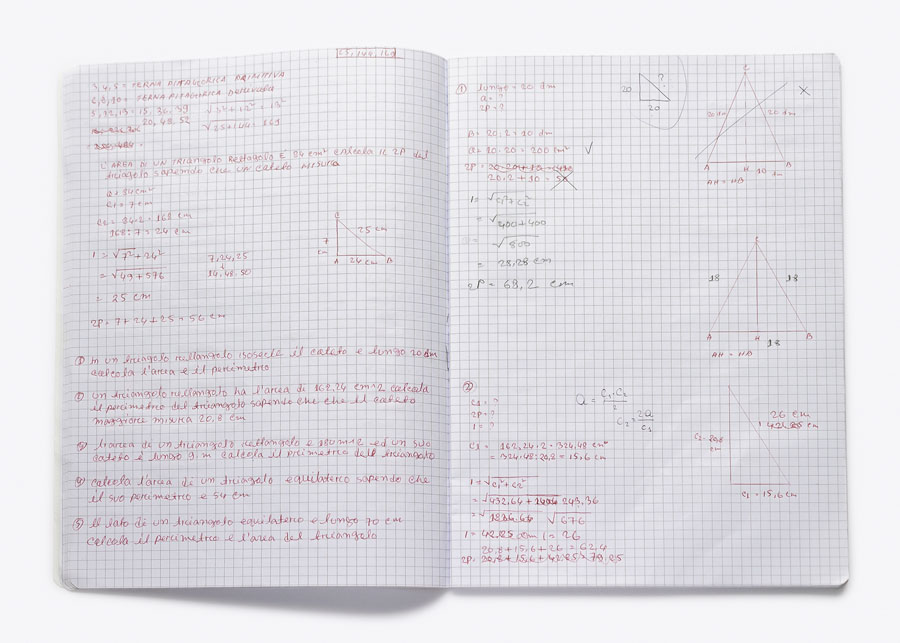 25, 144, 169
3, 4, 5 = TERNA PITAGORICA PRIMITIVA
6, 8, 10 = TERNA PITAGORICA DERIVATA
5, 12, 13 = 15, 36, 39
√5²+12² = 13²
20, 48, 52
√25+144 = 169
L'AREA DI UN TRIANGOLO RETTAGOLO È 84 cm² CALCOLA IL 2P del
triagolo sapendo che un cateto misura
a = 84 cm²
c1 = 7 cm
c2 = 84·2 = 168 cm
168:7 = 24 cm
i = √7²+24²
= √49+576
= 25 cm
7, 24, 25
14, 48, 50
C
7
cm
25 cm
A 24 cm B
2P = 7+24+25 = 56 cm
① in un triangolo rettangolo isoscele il cateto e lungo 20 dm
calcola l'area e il perimetro
② un triangolo rettangolo ha l'area di 162,24 cm^2 calcola
il perimetro del triangolo sapendo che che il cateto
maggiore misura 20,8 cm
③ l'area di un triangolo rettangolo e 180 m^2 ed un suo
cateto è lungo 9 m calcola il perimetro dell triangolo
④ calcola l'area di un triagolo equilaterio sapendo che
il suo perimetro e 54 cm
⑤ il lato di un triangolo equilaterio e lungo 70 cm
calcola il perimetro e l'area del triangolo
①
lungc = 20 dm
a = ?
2P = ?
20
?
20
A = 20:2 = 10 dm
a = 10·20 = 200 cm² √
2P =
20·2+10 = 50
i = √c1²+c2²
= √400+400
= √800
= 28,28 cm
2P = 68,2 cm
C
20 dm
20 dm
A H 10 dm B
AH = HB
C
18
18
A H B
18
AH = HB
②
c1 = ?
2P = ?
i = ?
a = c1·c2/2
c2 = 2a/c1
c1 = 162,24·2 = 324,48 cm²
= 324,48:20,8 = 15,6 cm
i = √c1²+c2²
= √432,64+ 243,36
= √ √676
i = 42,25 cm i = 26
20,8+15,6+26 = 62,4
2P = 20,8+15,6+42,25 = 78,25
26 cm
42,25 cm
c2 = 20,8
cm
c1 = 15,6 cm